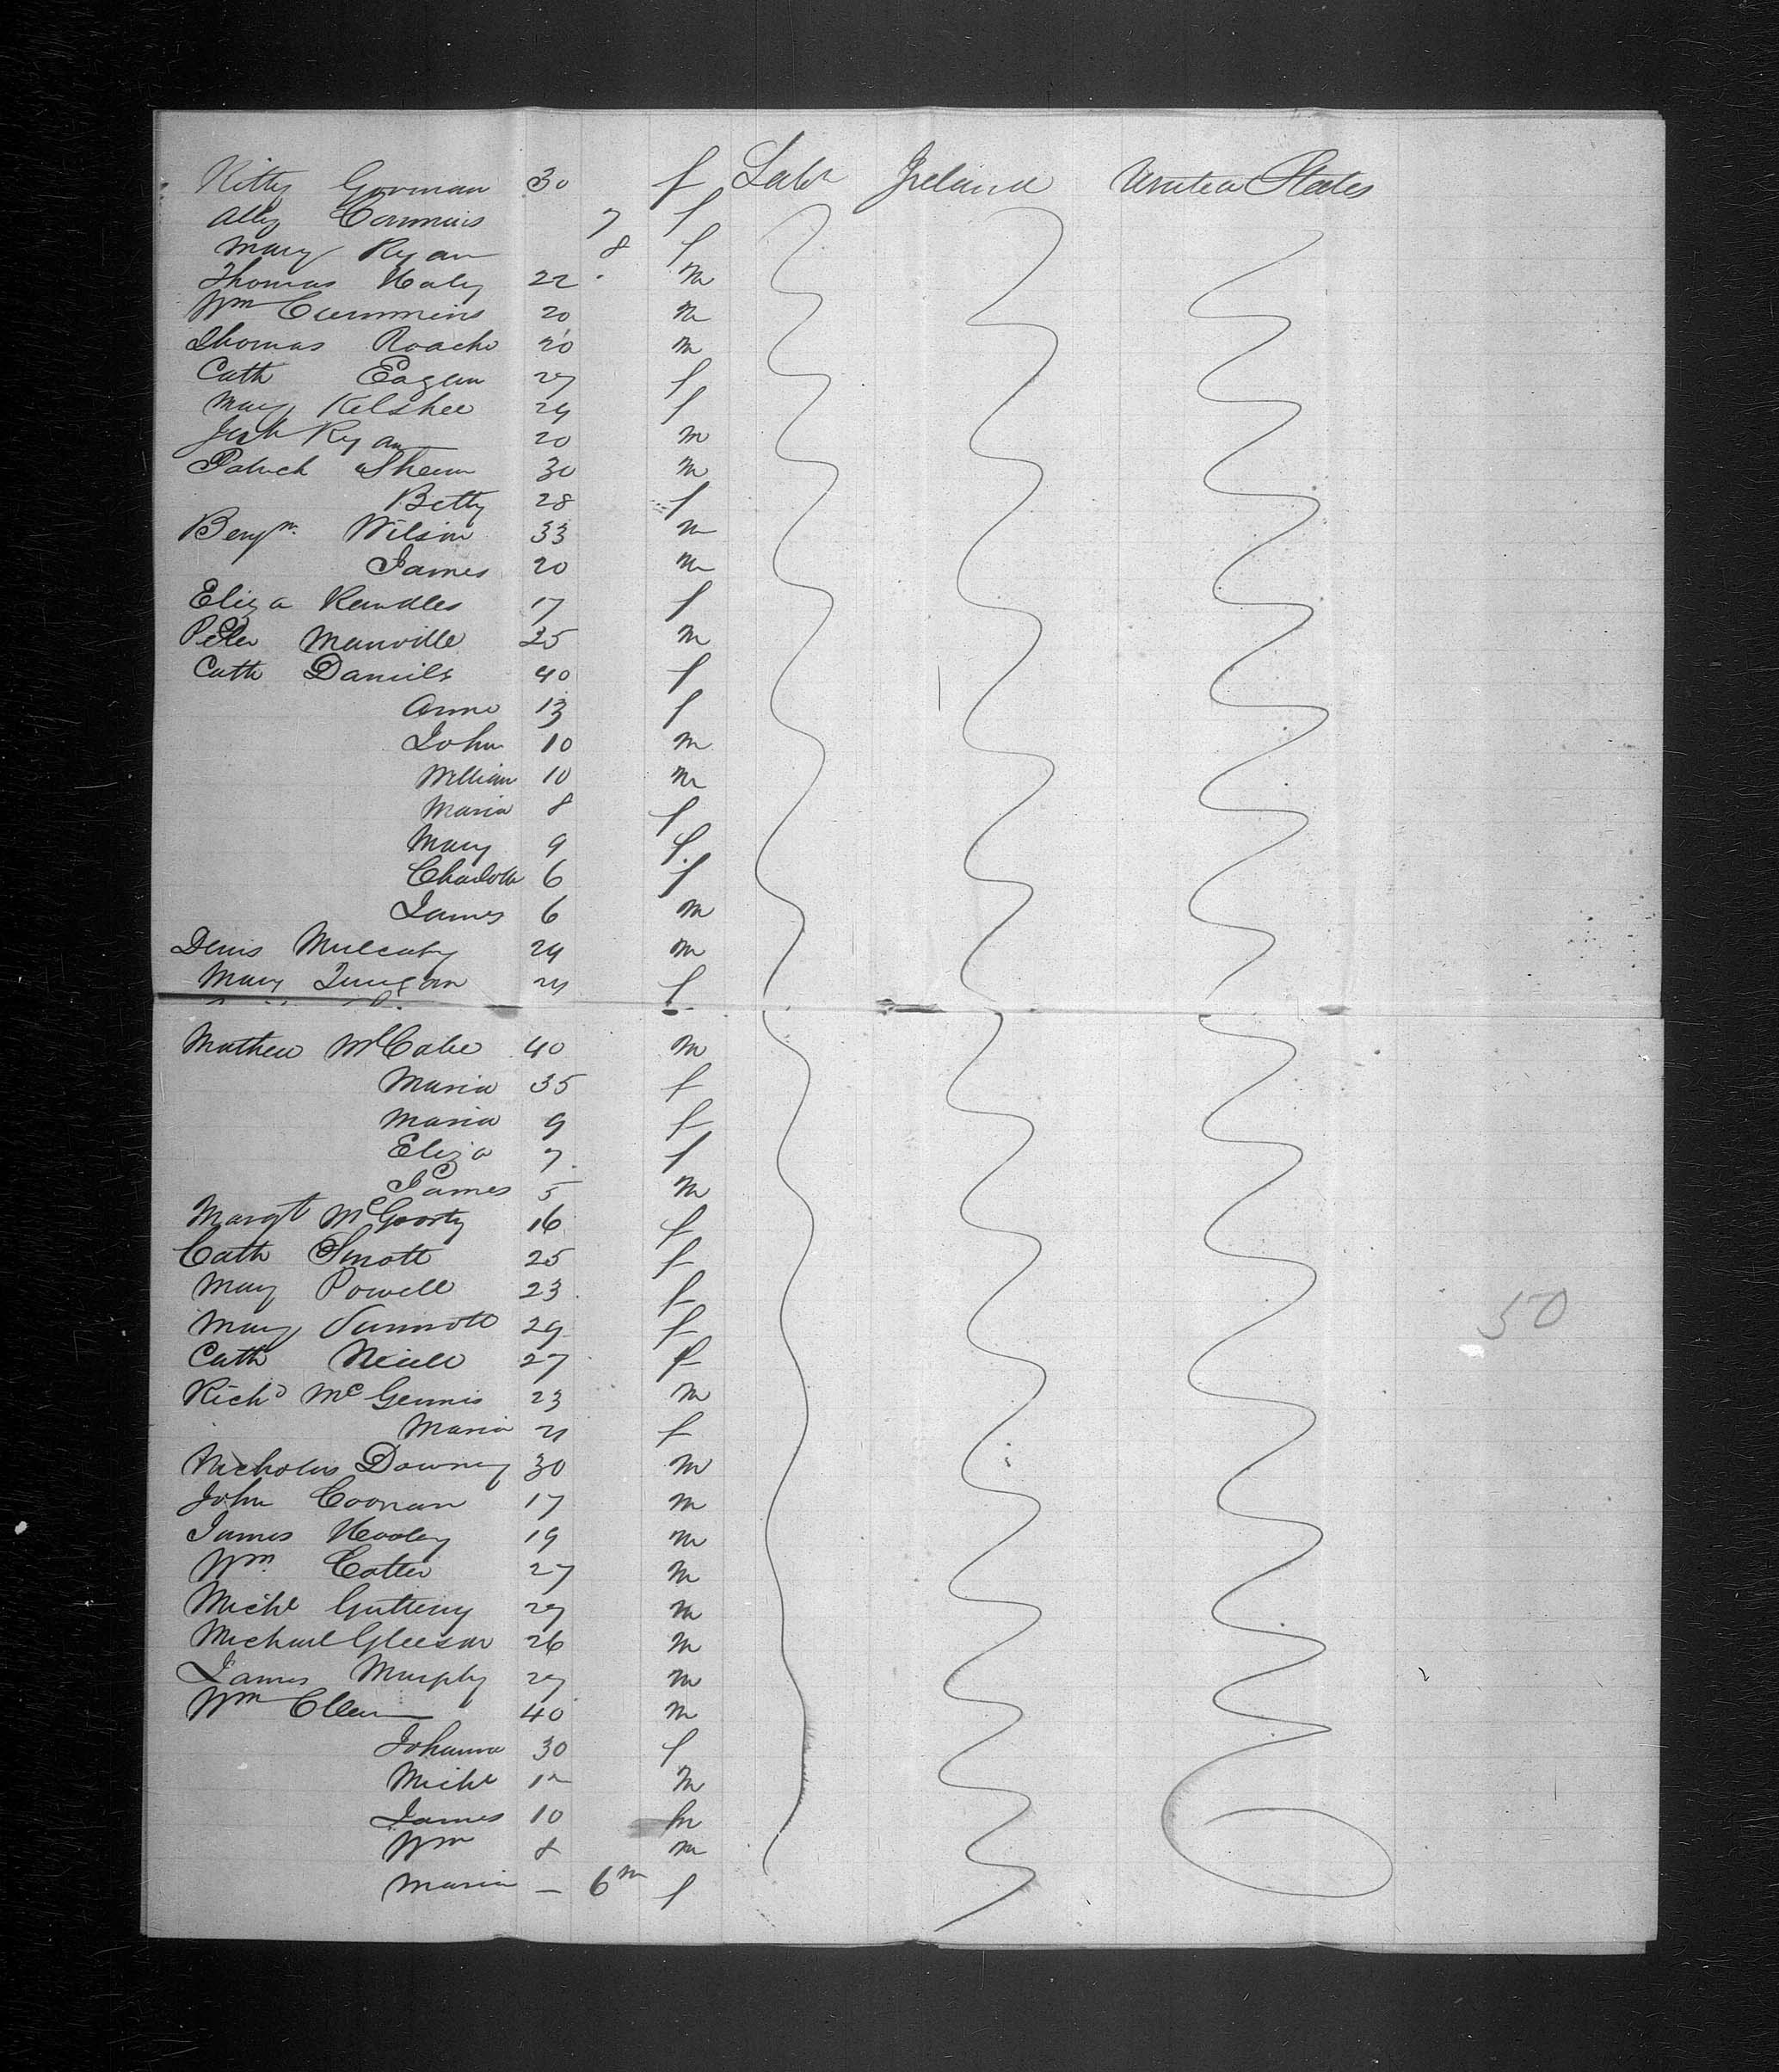 Kitty Gorman 30 f Labr Ireland United States
Ally Commins 7 f
Mary Ryan 8 f
Thomas Haly 22 m
Wm Cummins 20 m
Thomas Roache 20 m
Cath Eagan 27 f
Mary Kelshee 24 f
Ryan 20 m
Patrick Shean 30 m
Betty 28 f
Benjn. Wilson 33 m
James 20 m
Eliza Randles 17 f
Peter Manville 25 m
Cath Daniels 40 f
Anne 13 f
John 10 m
William 10 m
Maria 8 f
Mary 9 f
Charlotte 6 f
James 6 m
Denis Mulcahy 24 m
Mary f
Mathew McCabe 40 m
Maria 35 f
Maria 9 f
Eliza 7 f
James 5 m
Margt McGoorty 16 f
Cath Sinott 25 f
Mary Powell 23 f
Mary Sinnott 29 f
Cath Neill 27 f
Richd McGennis 23 m
Maria 21 f
Nicholas Downey 30 m
John Coonan 17 m
James Hooley 19 m
Wm. Cotter 27 m
Michl 27 m
Michael Gleeson 26 m
James Murphy 27 m
Wm Cllen 40 m
Johanna 30 f
Michl 12 m
James 10 m
Wm 8 m
Maria — 6m f
50